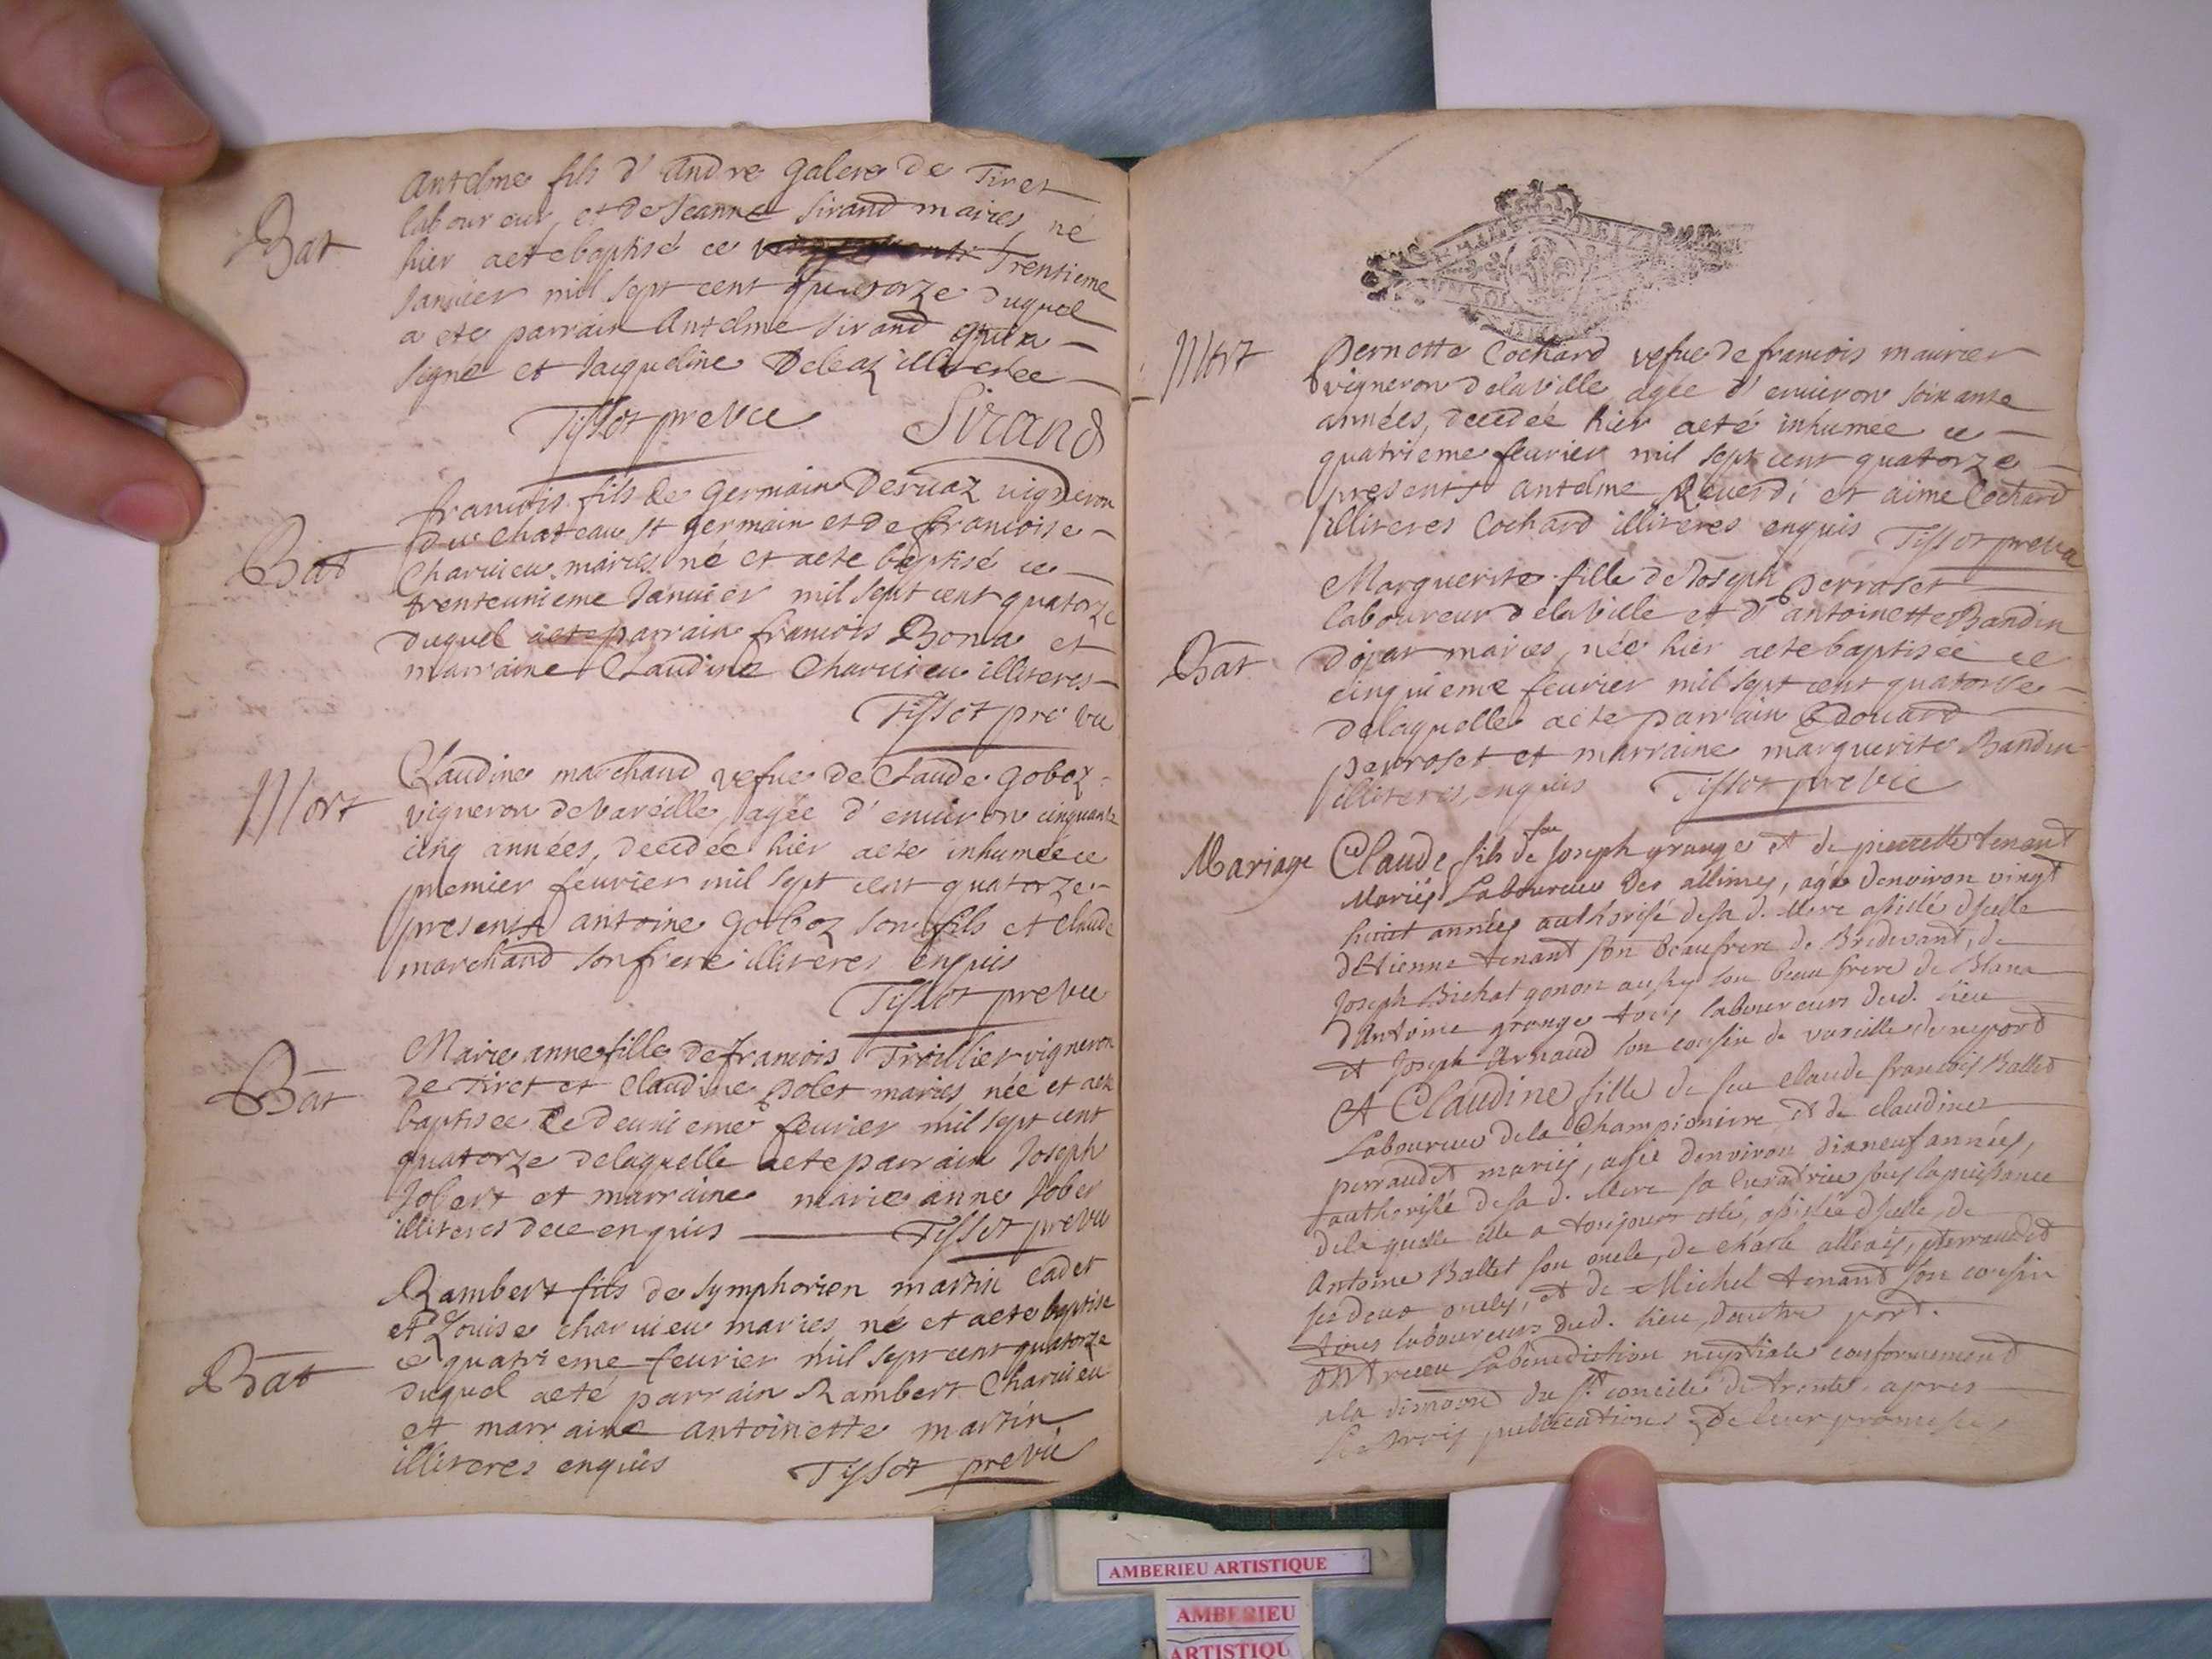 Bat
Antelme fils d'Andre Galere de Tiret
laboureur et de Jeanne Sirand maries né
hier aete baptisé ce Trentieme
Janvier mil sept cent quatorze duquel
a ete parrain Antelme Sirand qui a
signé et Jacqueline Deleaz illiteree
Tissot pre Vic Sirand
Bat
francois fils de Germain Deruaz vigneron
du chateau st germain et de francoise
Charuieu maries né et aete baptisé ce
trenteunieme Januier mil sept cent quatorze
duquel aete parrain francois Bona et
marraine Claudine Charuieu illiteres
Tissot pre vic
Mort
Claudine marchand vefue de Claude Goboz
vigneron de Vareille, agée d'enuiron cinquante
cinq années, decedée hier aete inhumée ce
premier feurier mil sept cent quatorze
presents antoine Goboz son fils et Claude
marchand son frere illiteres enquis
Tissot pre vic
Bat
Marie anne fille de francois Troillier vigneron
de Tiret et Claudine Polet maries née et aete
baptisee ce deuxieme feurier mil sept cent
quatorze delaquelle aete parrain Joseph
Jobert et marraine marie anne Jober
illiteres de ce enquis Tissot pre vic
Bat
Rambert fils de Symphorien martin Cadet
et Louise charuieu maries né et aete baptise
ce quatrieme feurier mil sept cent quatorze
duquel aeté parrain Rambert Charuieu
et marraine antoinette martin
illiteres enquis Tissot pre vic
Mort
Pernette Cochard vefue de francois maurier
vigneron delaville agée d'enuiron soixante
années, decedée hier aeté inhumée ce
quatrieme feurier mil sept cent quatorze
presents antelme Reuerdi et aime Cochard
illiteres Cochard illiteres enquis Tissot pre vic
Bat
Marguerite fille de Joseph Perroset
laboureur delaville et d'antoinette Bandin
maries, née hier aete baptisée ce
cinquieme feurier mil sept cent quatorze
delaquelle aete parrain Edouard
perroset et marraine marguerite Bandin
illiteres, enquis Tissot pre vic
Mariage
Claude fils de feu Joseph grange et de pierrette tenant
Mariés Laboureur des allimes, agé denviron vingt
huit années authorisé de sa d. Mere assisté d'icelle
d'Etienne tenant son beaufrere de Bredevant, de
Joseph Bichat gonon aussy son beau frere de Blana
d'Antoine grange tous laboureurs dud. lieu
et Joseph Arnaud son cousin de vareille d'une part
Et Claudine fille de feu Claude francois Ballet
Laboureur dela Championiere et de claudine
perraudet mariés, agée denviron dixneuf années,
authorisée de sa d. Mere sa Curatrice sous la puissance
de laquelle elle a toujours esté, assistée d'icelle, de
Antoine Ballet son oncle, de Charle perraudet
ses deux oncles, et de Michel tenant son cousin
tous laboureurs dud. lieu, dautre part.
Ont receu la benediction nuptiale conformement
ala du st. concile de trente, apres
les trois publications de leur promesses,
AMBERIEU ARTISTIQUE
AMBERIEU
ARTISTIQU